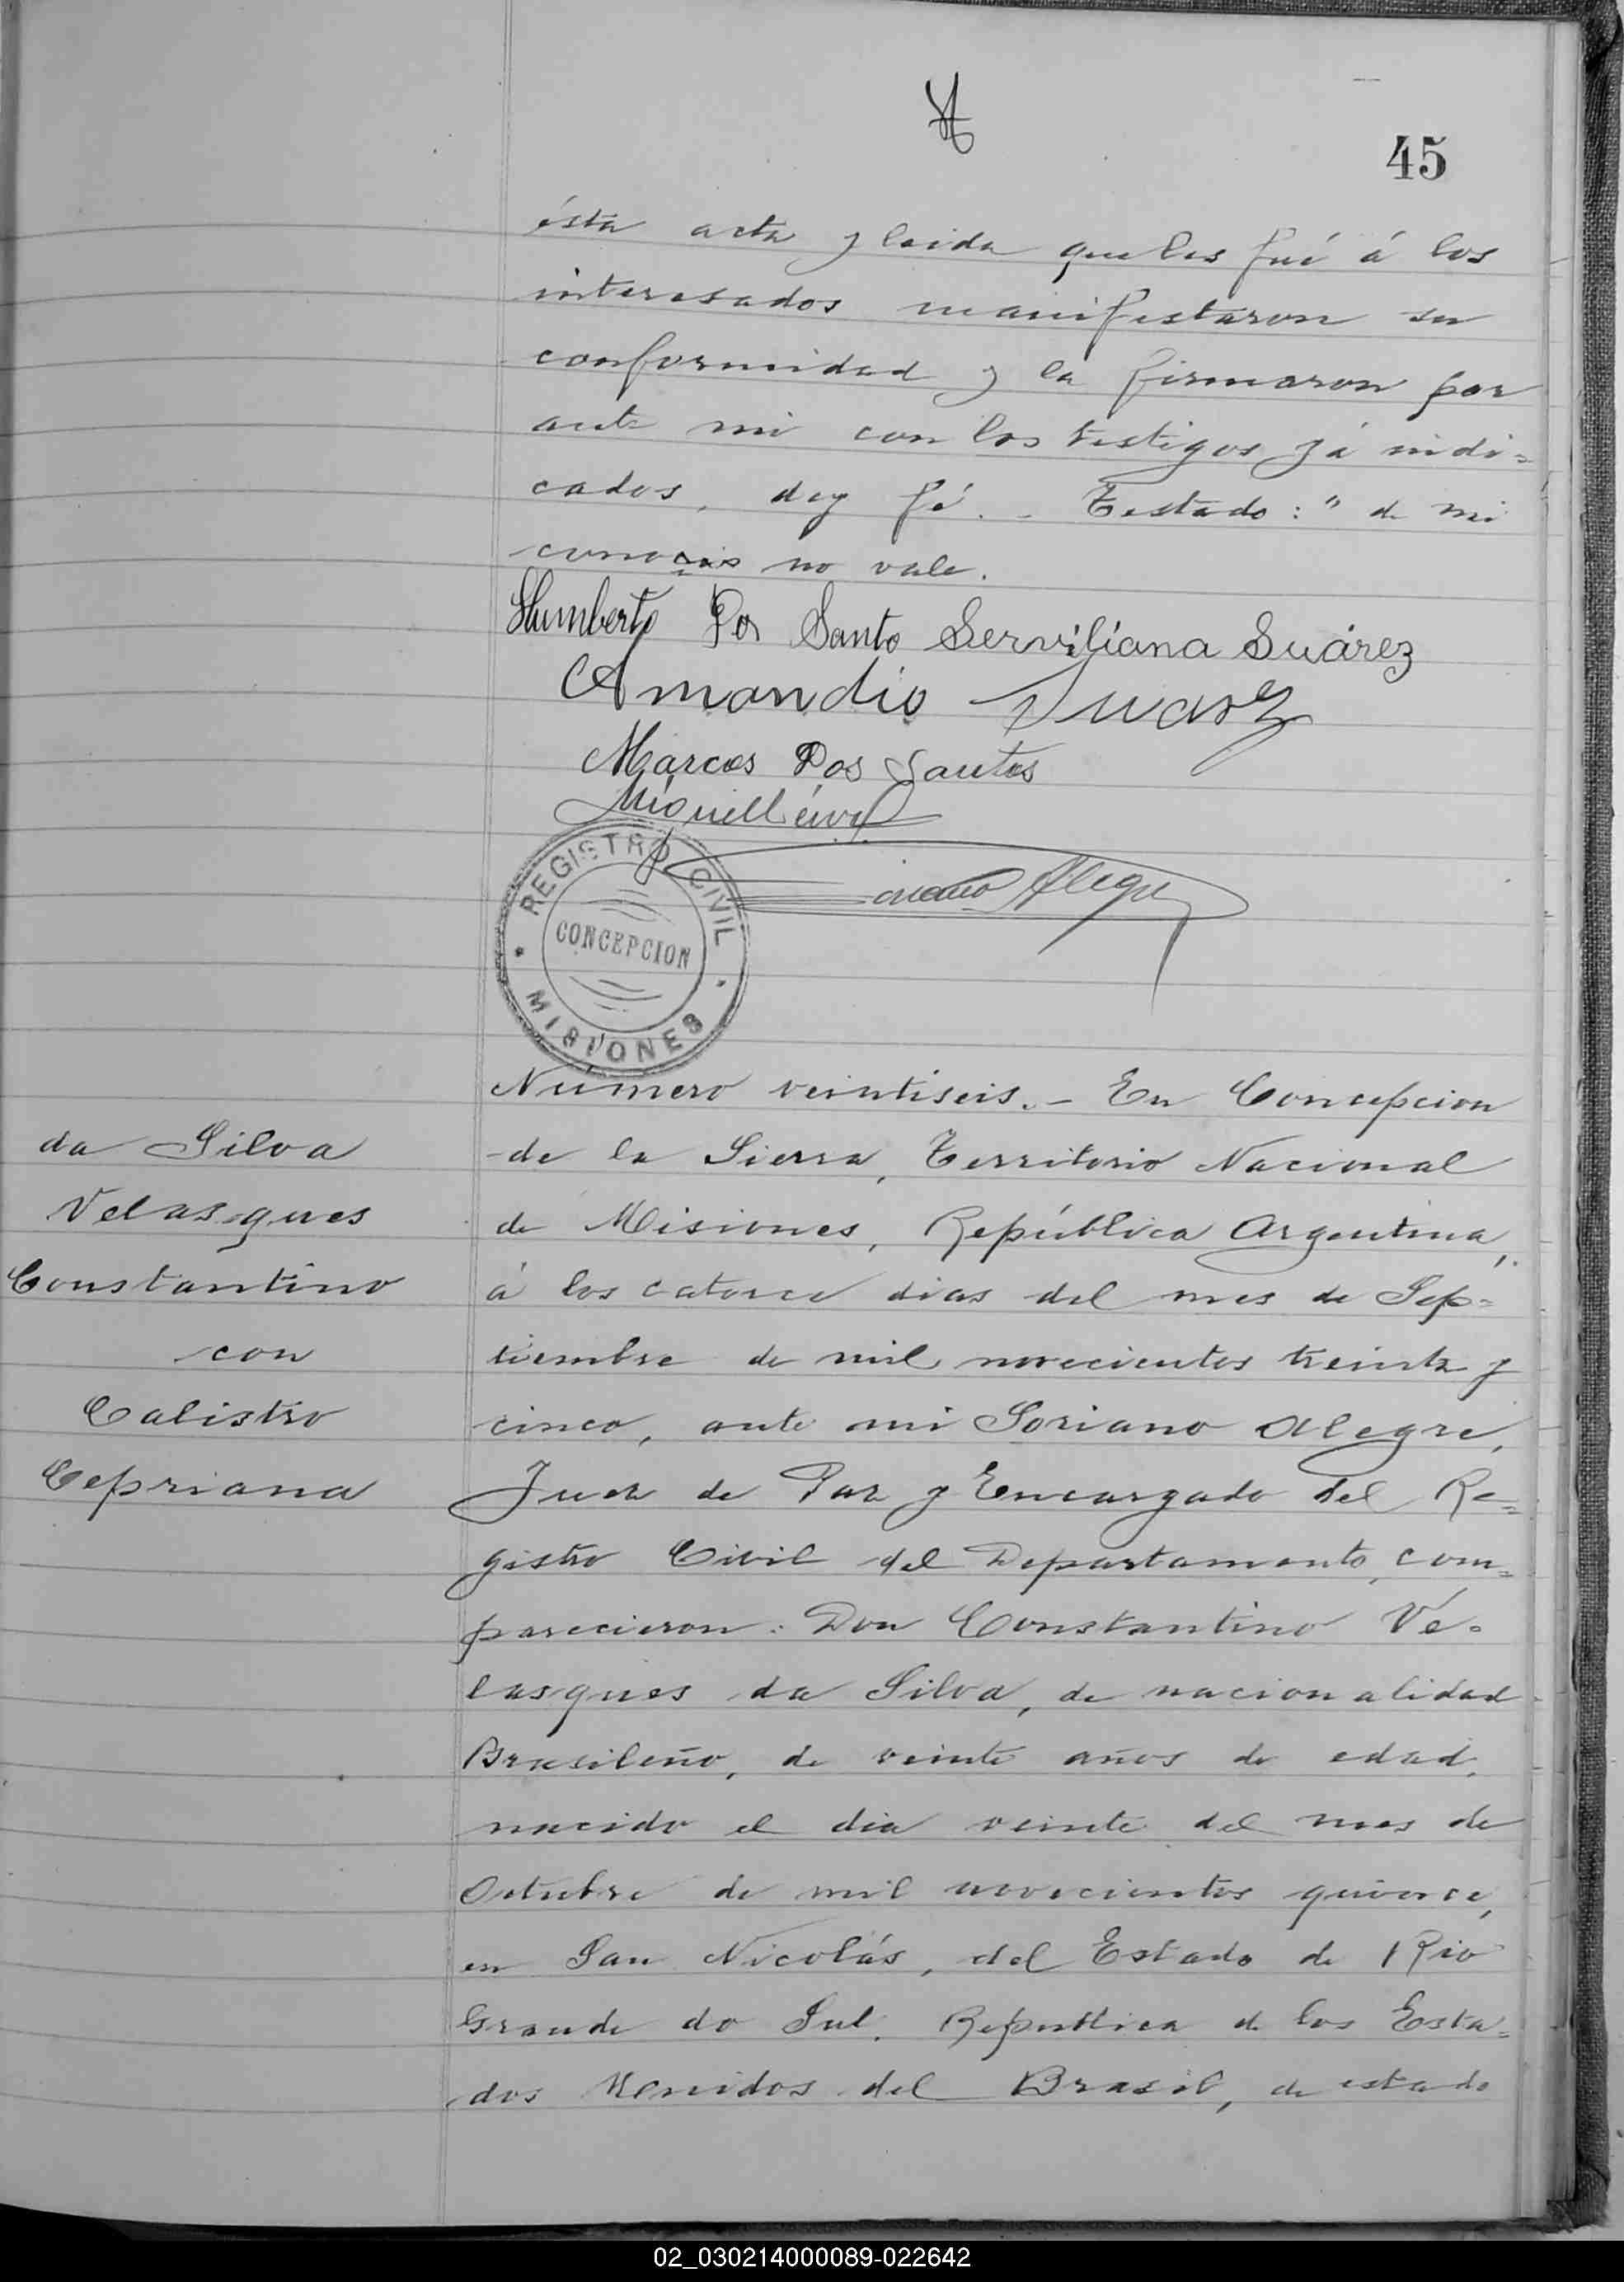 45
ésta acta y leida que les fué á los
interesados manifestaron su
conformidad y la firmaron por
ante mi con los testigos yá indi=
cados, doy fé. - Testado: " de mi
no vale.
Humberto Dos Santo Serviliana Suárez
Amandio Suarez
Marcos Dos Santos
Alegre
REGISTRO CIVIL
CONCEPCION
MISIONES
Número veintiseis. - En Concepcion
de la Sierra, Territorio Nacional
de Misiones, República Argentina,
á los catorce dias del mes de Sep=
tiembre de mil novecientos treinta y
cinco, ante mi Soriano Alegre,
Juez de Paz y Encargado del Re=
gistro Civil del Departamento, com=
parecieron: Don Constantino Ve=
lasques da Silva, de nacionalidad
Brasileño, de veinte años de edad,
nacido el dia veinte del mes de
Octubre de mil novecientos quince,
en San Nicolás, del Estado de Rio
Grande do Sul, Republica de los Esta=
dos Unidos del Brasil, de estado
da Silva
Velasques
Constantino
con
Calistro
Cepriana
02_030214000089-022642